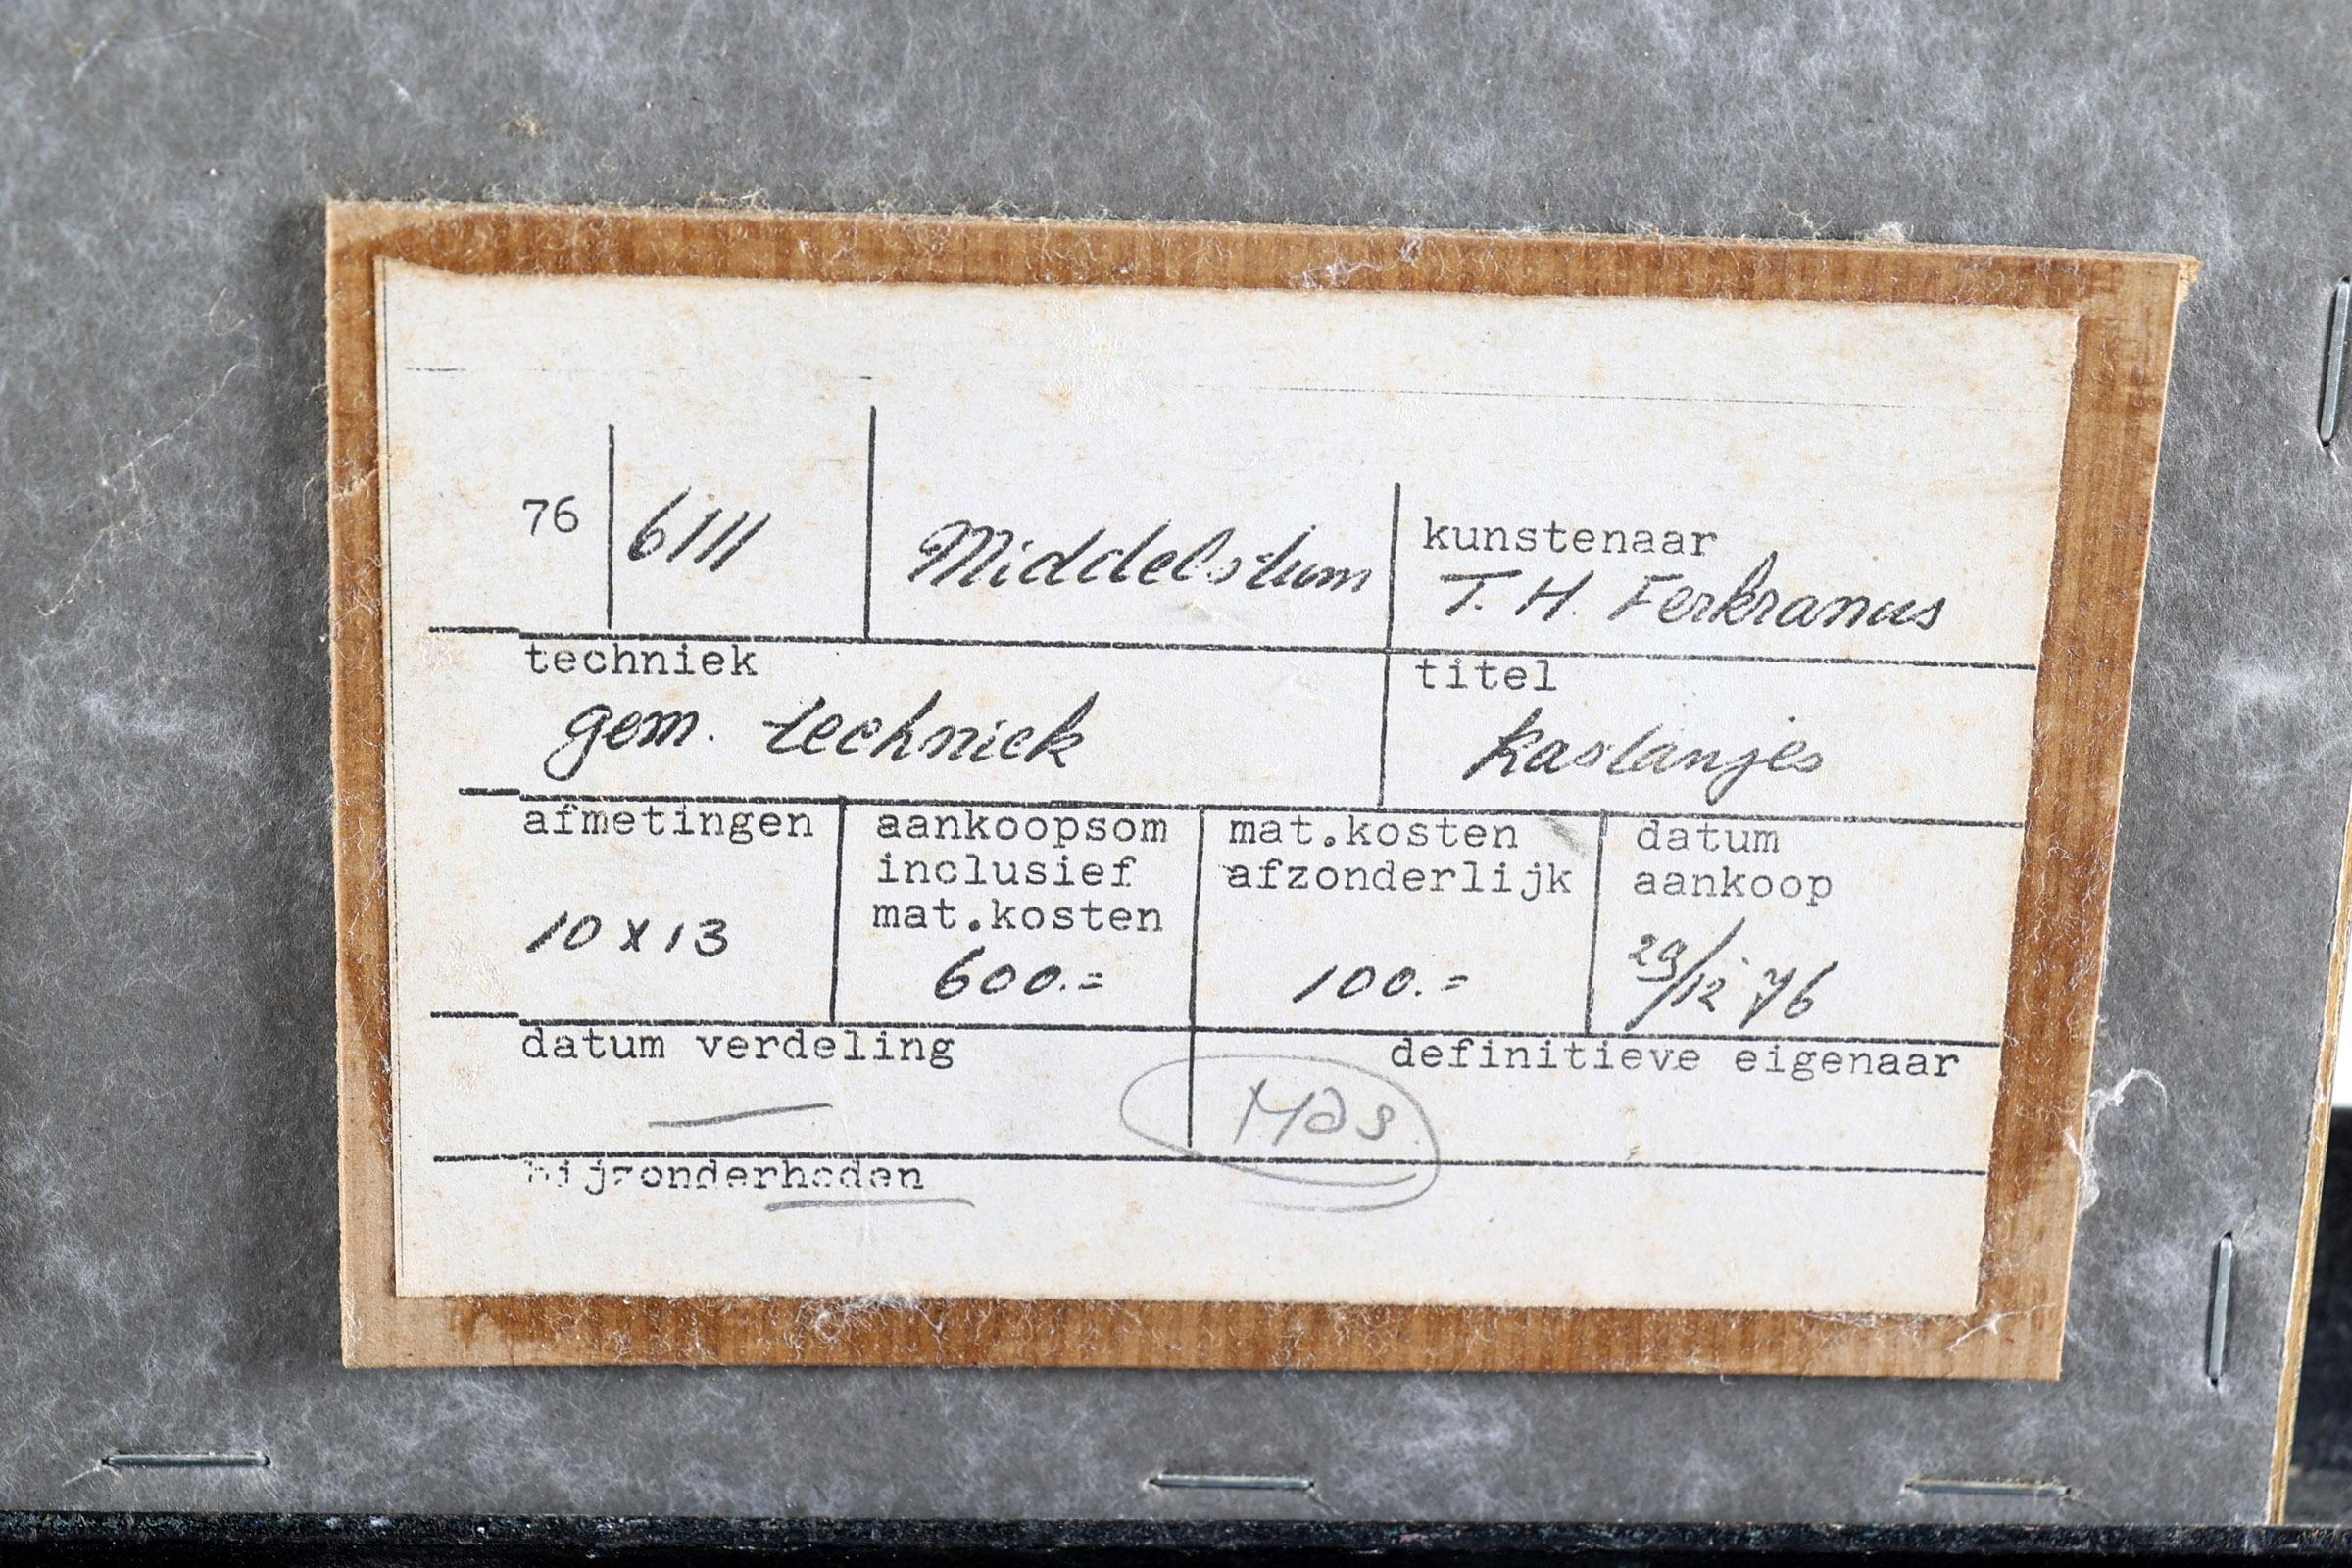 76 6111 Middelstum kunstenaar
T. H. Ferkranus
techniek titel
gem. techniek kastanjes
afmetingen aankoopsom mat.kosten datum
inclusief afzonderlijk aankoop
mat.kosten
10 x 13 600.= 100.= 29/12 '76
datum verdeling definitieve eigenaar
—
bijzonderheden